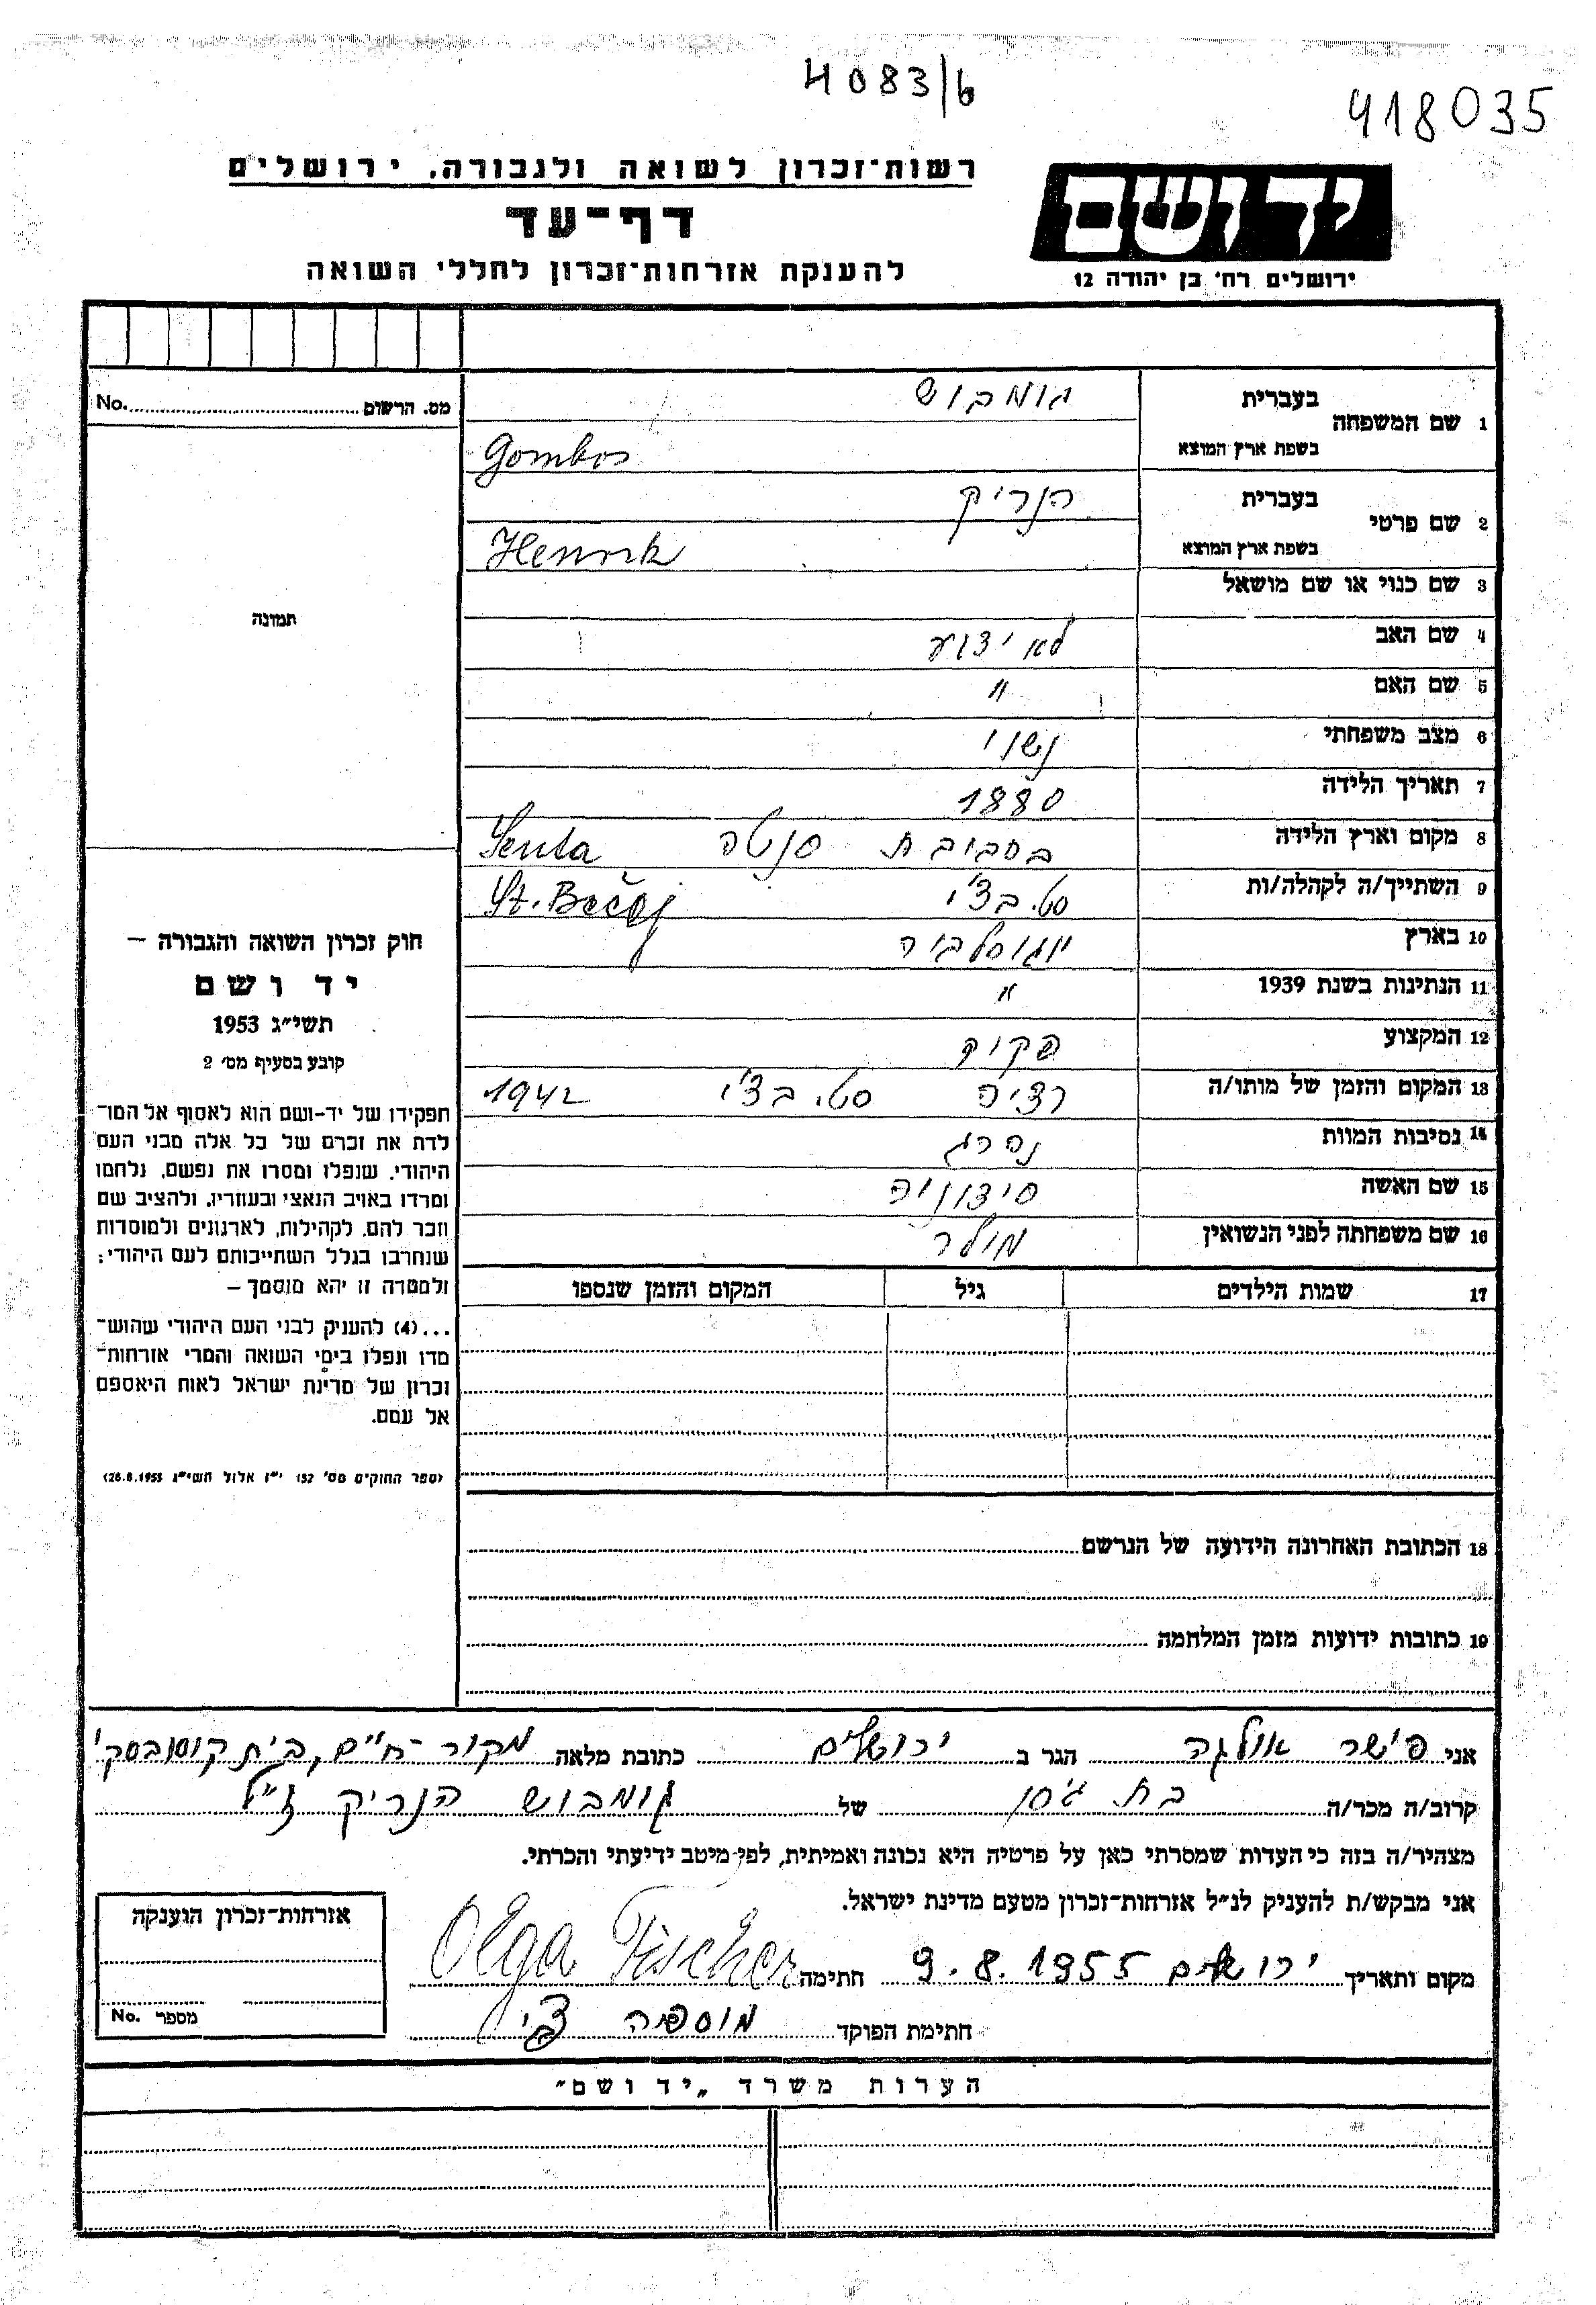 4083/6
418035
רשות־זכרון לשואה ולגבורה. ירושלים
יד ושם
דף־עד
להענקת אזרחות־זכרון לחללי השואה
ירושלים רח' בן יהודה 12
מס. הרשום No.
1 שם המשפחה בעברית גומבוש
בשפת ארץ המוצא Gombos
2 שם פרטי בעברית הנריק
בשפת ארץ המוצא Henrik
3 שם כנוי או שם מושאל
תמונה
4 שם האב לא ידוע
5 שם האם "
6 מצב משפחתי נשוי
7 תאריך הלידה 1880
8 מקום וארץ הלידה בסביבת סנטה Senta
9 השתייך/ה לקהלה/ות סט. בצ'י St. Bečej
10 בארץ יוגוסלביה
11 הנתינות בשנת 1939 "
12 המקצוע פקיד
13 המקום והזמן של מותו/ה רציה סט. בצ'י 1942
14 נסיבות המוות נהרג
15 שם האשה סידוניה
16 שם משפחתה לפני הנשואין מולר
17 שמות הילדים גיל המקום והזמן שנספו
חוק זכרון השואה והגבורה –
יד ושם
תשי"ג 1953
קובע בסעיף מס' 2
תפקידו של יד-ושם הוא לאסוף אל המו־
לדת את זכרם של כל אלה מבני העם
היהודי, שנפלו ומסרו את נפשם, נלחמו
ומרדו באויב הנאצי ובעוזריו, ולהציב שם
וזכר להם, לקהילות, לארגונים ולמוסדות
שנחרבו בגלל השתייכותם לעם היהודי;
ולמטרה זו יהא מוסמך –
...(4) להעניק לבני העם היהודי שהוש־
מדו ונפלו בימי השואה והמרי אזרחות־
זכרון של מדינת ישראל לאות היאספם
אל עמם.
(ספר החוקים מס' 132 י"ז אלול תשי"ג 28.8.1953)
18 הכתובת האחרונה הידועה של הנרשם
19 כתובות ידועות מזמן המלחמה
אני פישר אולגה הגר ב ירושלים כתובת מלאה מקור-חיים, בית קוסובסקי
קרוב/ה מכר/ה בת של גומבוש הנריק ז"ל
מצהיר/ה בזה כי העדות שמסרתי כאן על פרטיה היא נכונה ואמיתית, לפי מיטב ידיעתי והכרתי.
אני מבקש/ת להעניק לנ"ל אזרחות־זכרון מטעם מדינת ישראל.
מקום ותאריך ירושלים 9.8.1955 חתימה Olga Fischer
חתימת הפוקד
אזרחות־זכרון הוענקה
מספר No.
הערות משרד „יד ושם"